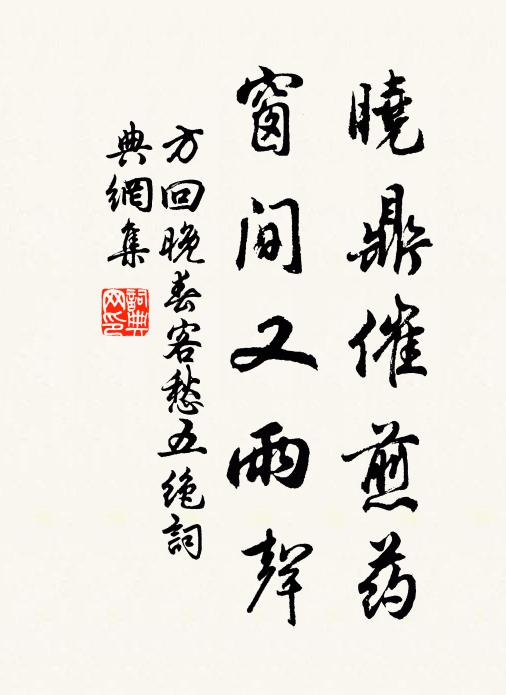 曉鼎催煎药
窗間又雨聲
方回晚春客愁五绝詞
典網集
詞典网印